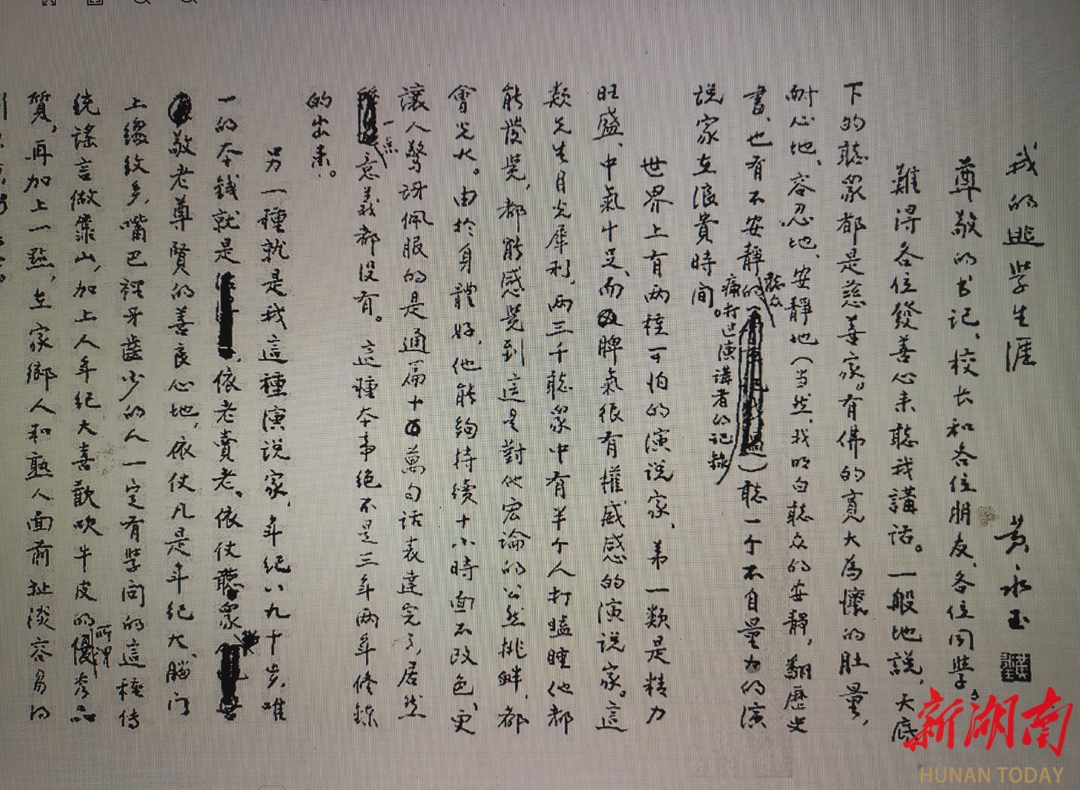 我的逃學生涯 黃永玉
尊敬的书记、校长和各位朋友、各位同學,
難得各位發善心来聽我講话。一般地説,天底
下的聽衆都是慈善家。有佛的寬大為懷的肚量,
耐心地、容忍地、安静地(当然,我明白聽众的安静,翻歷史
書,也有不安静的聽众痛打过演講者的记録)聽一个不自量力的演
说家在浪費時间。
世界上有两種可怕的演说家、第一類是精力
旺盛、中氣十足、而脾氣很有權威感的演说家。這
類先生目光犀利,两三千聽衆中有半个人打瞌睡他都
能發覺,都能感覺到這是對他宏論的公然挑衅,都
會光火。由於身體好,他能夠持續十小時面不改色,更
讓人驚讶佩服的是通篇十萬句话表達完了,居然
一点意義都没有。這種本事绝不是三年两年修錬
的出来。
另一種就是我這種演说家,年纪八九十岁,唯
一的本钱就是依老賣老。依仗聽衆
敬老尊賢的善良心地,依仗凡是年纪大、腦门
上縐纹多,嘴巴裡牙齒少的人一定有学问的這種傳
统謡言做靠山,加上人年纪大喜歡吹牛皮的所谓優秀品
質,再加上一點,在家鄉人和熟人面前扯淡容易的
新湖南
HUNAN TODAY